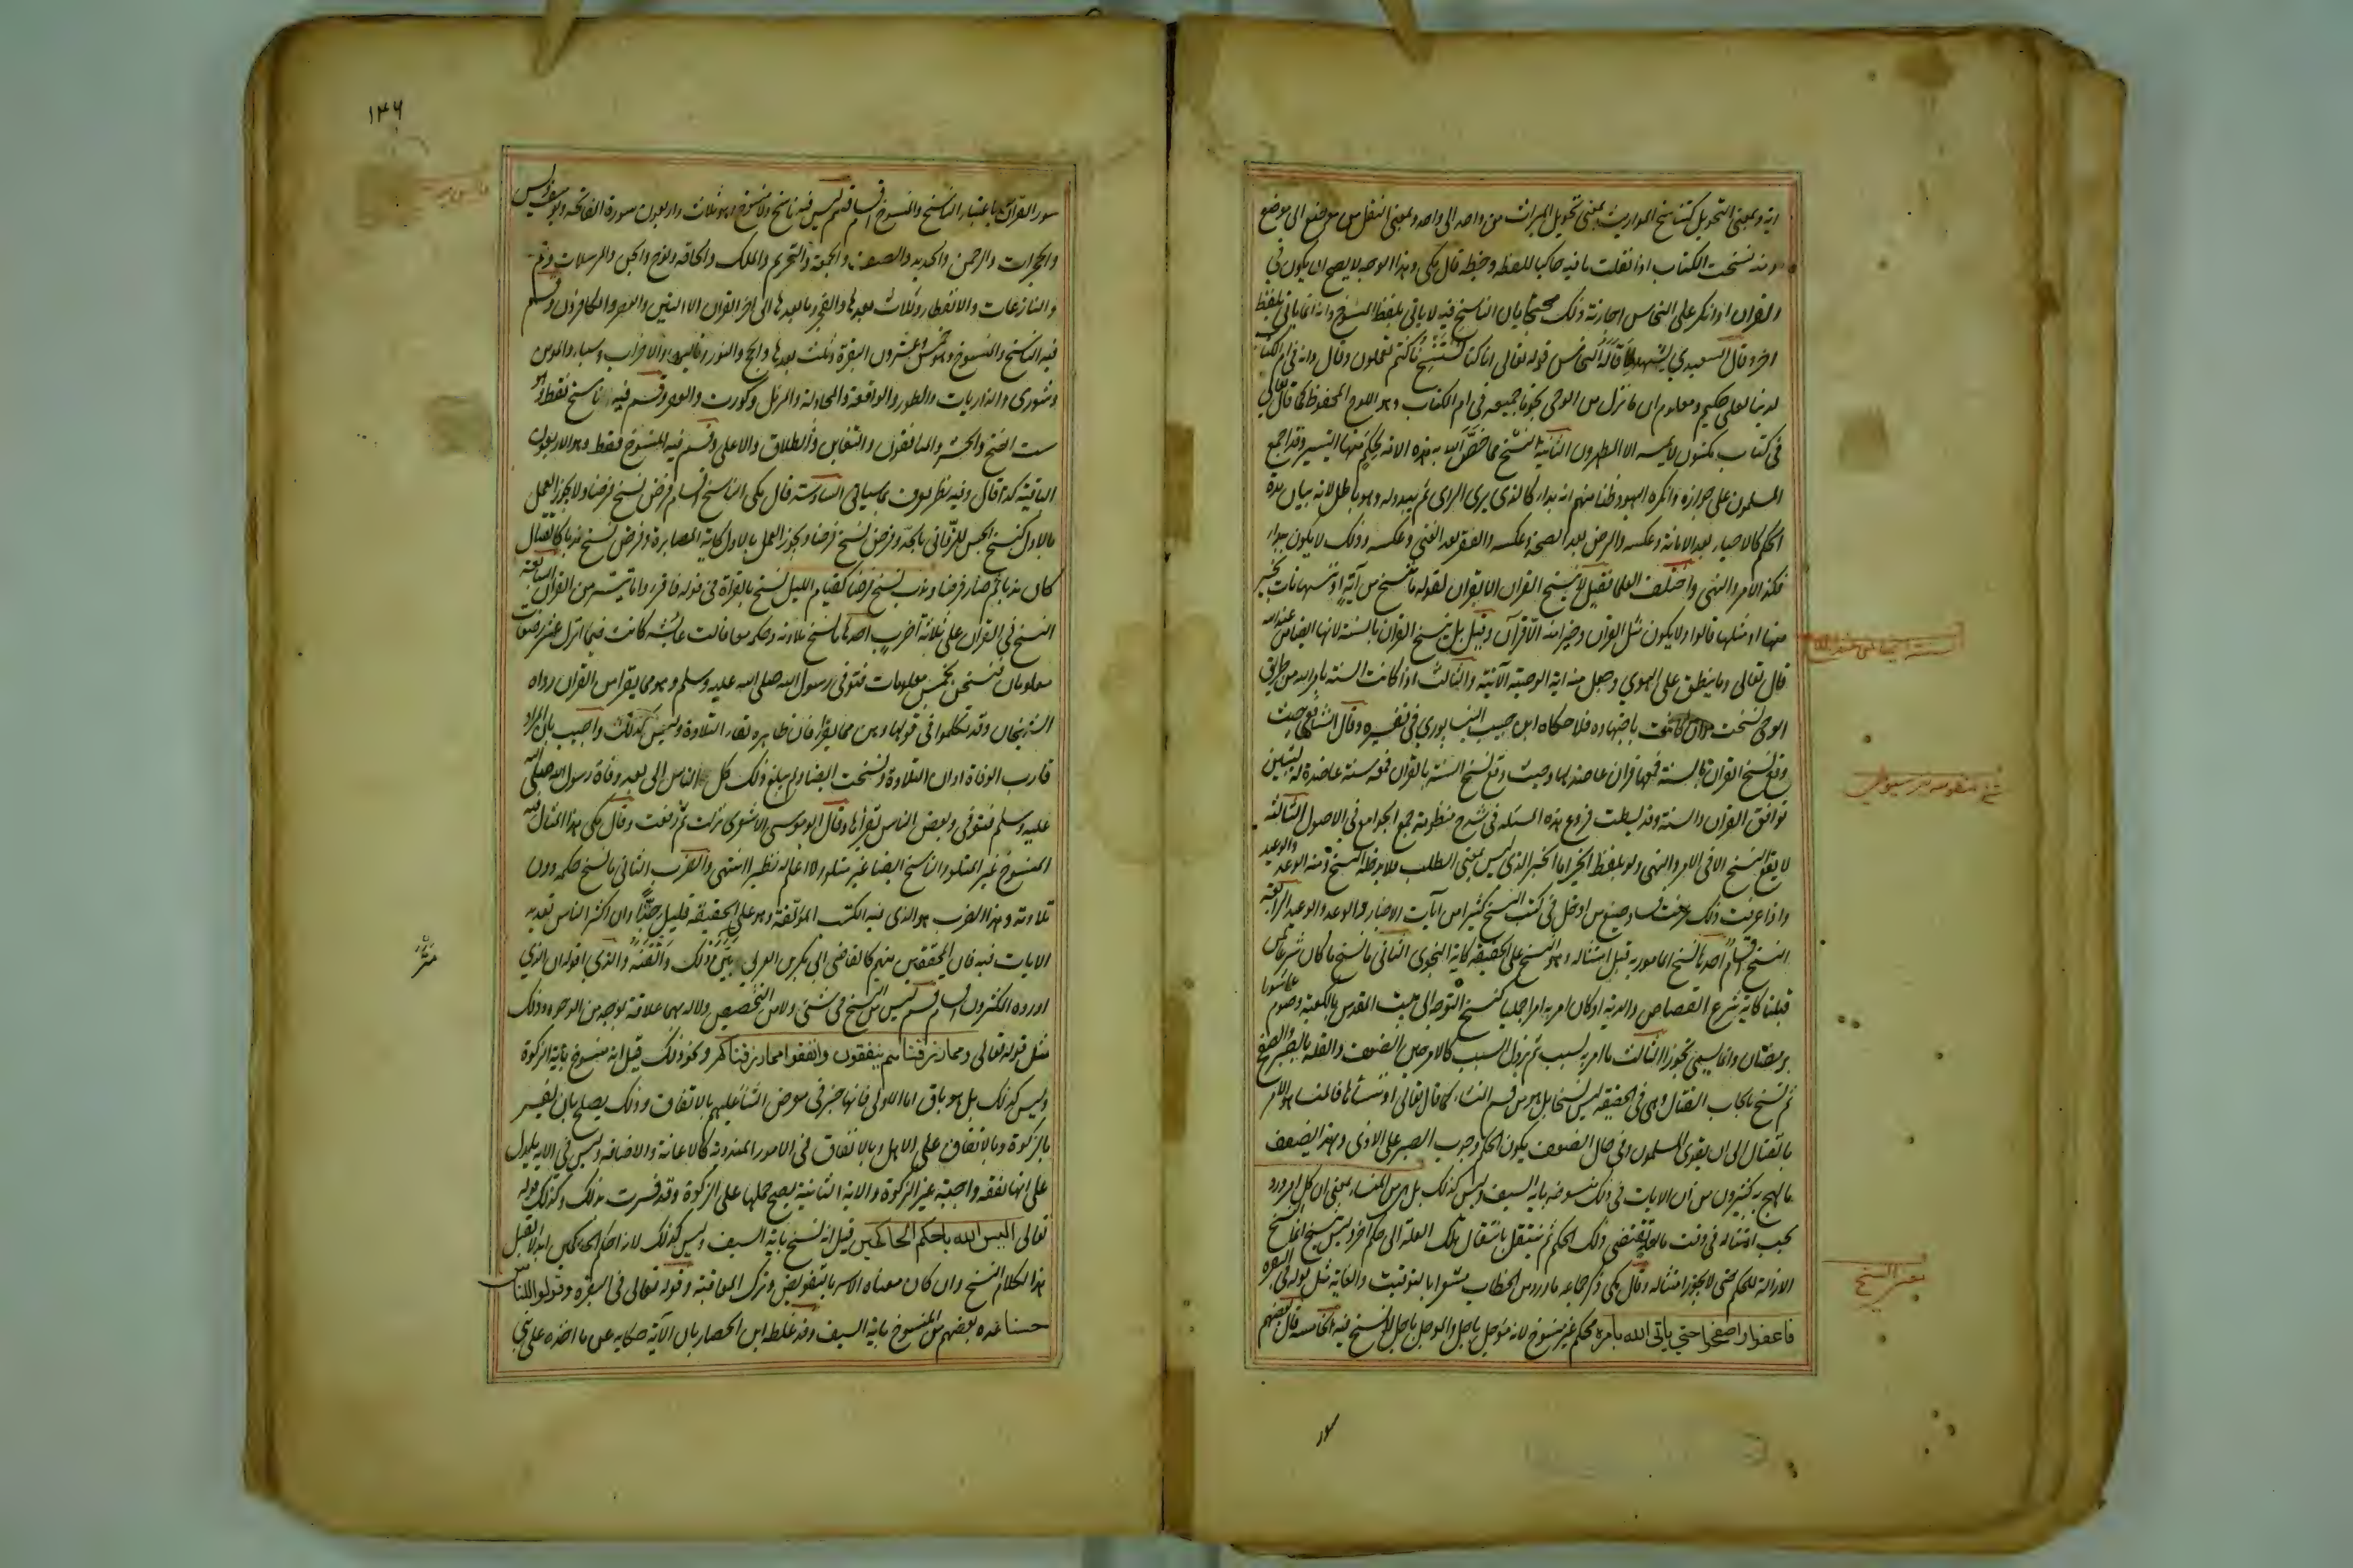 اية وبمعنى التحويل كتناسخ المواريث بمعنى تحويل الميراث من واحد الى واحد وبمعنى النقل من موضع الى موضع
ومنه نسخت الكتاب اذا نقلت ما فيه حاكيا للفظه وخطه قال مكى وهذا الوجه لا يصح ان يكون فى
القران وانكر على النحاس اجازته ذلك محتجا بان الناسخ فيه لا ياتى بلفظ المنسوخ وانه انما ياتى بلفظ
اخر وقال السعيدي يشهد لما قاله النحاس قوله تعالى انا كنا نستنسخ ما كنتم تعملون وقال وانه فى ام الكتاب
لدينا لعلى حكيم ومعلوم ان ما نزل من الوحى نجوما جميعه فى ام الكتاب وهو اللوح المحفوظ كما قال تعالى
فى كتاب مكنون لا يمسه الا المطهرون الثانية النسخ مما خص الله به هذه الامة لحكم منها التيسير وقد اجمع
المسلمون على جوازه وانكره اليهود ظنا منهم انه بداء كالذى يرى الراى ثم يبدو له وهو باطل لانه بيان مدة
الحكم كالاحياء بعد الاماتة وعكسه والمرض بعد الصحة وعكسه والفقر بعد الغنى وعكسه وذلك لا يكون بداء
فكذا الامر والنهى واختلف العلما فقيل لا ينسخ القران الا بقران لقوله ما ننسخ من آية او ننسها نات بخير
منها او مثلها قالوا ولا يكون مثل القران وخيرا منه الا قرآن وقيل بل ينسخ القران بالسنة لانها ايضا من عند الله
قال تعالى وما ينطق عن الهوي وجعل منه اية الوصية الآتية والثالث اذا كانت السنة بامر الله من طريق
الوحى نسخت وان كانت باجتهاد فلا حكاه ابن حبيب النيسابوري فى تفسيره وقال الشافعى حيث
وقع نسخ القران بالسنة فمعها قران عاضد لها وحيث وقع نسخ السنة بالقران فمعه سنة عاضدة له ليتبين
توافق القران والسنة وقد بسطت فروع هذه المسئلة فى شرح منظومة جمع الجوامع فى الاصول الثالثة
لا يقع النسخ الا فى الامر والنهى ولو بلفظ الخبر اما الخبر الذى ليس بمعنى الطلب فلا يدخله النسخ ومنه الوعد والوعيد
واذا عرفت ذلك عرفت فساد صنيع من ادخل فى كتب النسخ كثيرا من آيات الاخبار والوعد والوعيد الرابعة
النسخ اقسام احدها نسخ المامور به قبل امتثاله وهو النسخ على الحقيقة كاية النجوى الثانى ما نسخ مما كان شرعا لمن
قبلنا كاية شرع القصاص والدية او كان امر به امرا جمليا كنسخ التوجه الى بيت المقدس بالكعبة وصوم عاشورا
برمضان وانما يسمى تجوزا الثالث ما امر به لسبب ثم يزول السبب كالامر حين الضعف والقلة بالصبر والصفح
ثم نسخ بايجاب القتال وهى فى الحقيقة ليس نسخا بل هو من قسم المنساء كما قال تعالى او ننسأها فالمنسا هو الامر
بالقتال الى ان يقوى المسلمون وفى حال الضعف يكون الحكم وجوب الصبر على الاذى وبهذا يضعف
ما لهج به كثيرون من ان الايات فى ذلك منسوخة باية السيف وليس كذلك بل هى من المنساء بمعنى ان كل امر ورد
يجب امتثاله فى وقت ما لعلة تقتضى ذلك الحكم ثم ينتقل بانتقال تلك العلة الى حكم اخر وليس بنسخ انما النسخ
الازالة للحكم حتى لا يجوز امتثاله وقال مكى ذكر جماعة ما ورد من الخطاب مشعرا بالتوقيت والغاية مثل قوله فى البقرة
فاعفوا واصفحوا حتى ياتى الله بامره محكم غير منسوخ لانه مؤجل باجل والموجل باجل لا نسخ فيه الخامسة قال بعضهم
سور
شرح منظومه سيوطى
سور القران باعتبار الناسخ والمنسوخ اقسام قسم ليس فيه ناسخ ولا منسوخ وهو ثلاث واربعون سورة الفاتحة ويوسف ويس
والحجرات والرحمن والحديد والصف والجمعة والتحريم والملك والحاقة ونوح والجن والمرسلات وعم
والنازعات والانفطار وثلاث بعدها والفجر وما بعدها الى اخر القران الا التين والعصر والكافرون وقسم
فيه الناسخ والمنسوخ وهو خمس وعشرون البقرة وثلث بعدها والحج والنور وتالياها والاحزاب وسبا والمومن
وشورى والذاريات والطور والواقعة والمجادلة والمزمل وكورت والعصر وقسم فيه ناسخ فقط وهو
ست الفتح والحشر والمنافقون والتغابن والطلاق والاعلى وقسم فيه المنسوخ فقط وهو الاربعون
الباقية كذا قال وفيه نظر يعرف مما سياتى السادسة قال مكى الناسخ اقسام فرض نسخ فرضا ولا يجوز العمل
بالاول كنسخ الحبس للزوانى بالحد وفرض نسخ فرضا ويجوز العمل بالاول كاية المصابرة وفرض نسخ ندبا كالقتال
كان ندبا ثم صار فرضا وندب نسخ فرضا كقيام الليل نسخ بالقراة فى قوله فاقروا ما تيسر من القران السابعة
النسخ فى القران على ثلاثة اضرب احدها ما نسخ تلاوته وحكمه معا قالت عايشة كانت فيما انزل عشر رضعات
معلومات فنسخن بخمس معلومات فتوفى رسول الله صلى الله عليه وسلم وهو مما يقرا من القران رواه
الشيخان وقد تكلموا فى قولها وهن مما يقرا فان ظاهره بقاء التلاوة وليس كذلك واجيب بان المراد
قارب الوفاة او ان التلاوة نسخت ايضا ولم يبلغ ذلك كل الناس الا بعد وفاة رسول الله صلى الله
عليه وسلم فتوفى وبعض الناس يقرأها وقال ابو موسى الاشعرى نزلت ثم رفعت وقال مكى هذا المثال فيه
المنسوخ غير المتلو والناسخ ايضا غير متلو ولا اعلم له نظيرا انتهى والضرب الثانى ما نسخ حكمه دون
تلاوته وهذا الضرب هو الذى فيه الكتب المؤلفة وهو على الحقيقة قليل جدا وان اكثر الناس تعديد
الايات فيه فان المحققين منهم كالقاضى ابى بكر بن العربى بين ذلك واتقنه والذى اقوله ان الذى
اورده المكثرون اقسام قسم ليس من النسخ فى شئ ولا من التخصيص ولا له بهما علاقة بوجه من الوجوه وذلك
مثل قوله تعالى ومما رزقناهم ينفقون وانفقوا مما رزقناكم ونحو ذلك قيل انه منسوخ باية الزكوة
وليس كذلك بل هو باق اما الاولى فانها خبر فى معرض الثنا عليهم بالانفاق وذلك يصلح بان يفسر
بالزكوة وبالانفاق على الاهل وبالانفاق فى الامور المندوبة كالاعانة والاضافة وليس فى الاية ما يدل
على انها نفقة واجبة غير الزكوة والاية الثانية يصح حملها على الزكوة وقد فسرت بذلك وكذلك قوله
تعالى اليس الله باحكم الحاكمين قيل انه نسخ باية السيف وليس كذلك لانه احكم الحاكمين ابدا لا يقبل
هذا الكلام النسخ وان كان معناه الامر بالتفويض وترك المعاقبة وقوله تعالى فى البقرة وقولوا للناس
حسنا عده بعضهم من المنسوخ باية السيف وقد غلطه ابن الحصار بان الآية حكاية عن ما اخذه على بنى